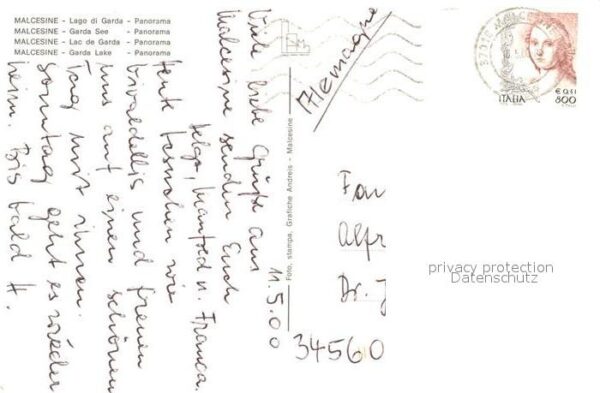 MALCESINE - Lago di Garda - Panorama
MALCESINE - Garda See - Panorama
MALCESINE - Lac de Garda - Panorama
MALCESINE - Garda Lake - Panorama
11.5.00
Viele liebe Grüße aus
Malcesine senden Euch
Helga, Manfred u. Franca.
Heute besuchen wir
Vivaldellis und freuen
uns auf einen schönen
Tag mit ihnen.
Sonntag geht es wieder
heim. Bis bald H.
Foto, stampa, Grafiche Andreis - Malcesine
Allemagne
MALCESINE
ITALIA
€ 0,41
800
Fam
Alfr
Dr. J
34560
privacy protection
Datenschutz